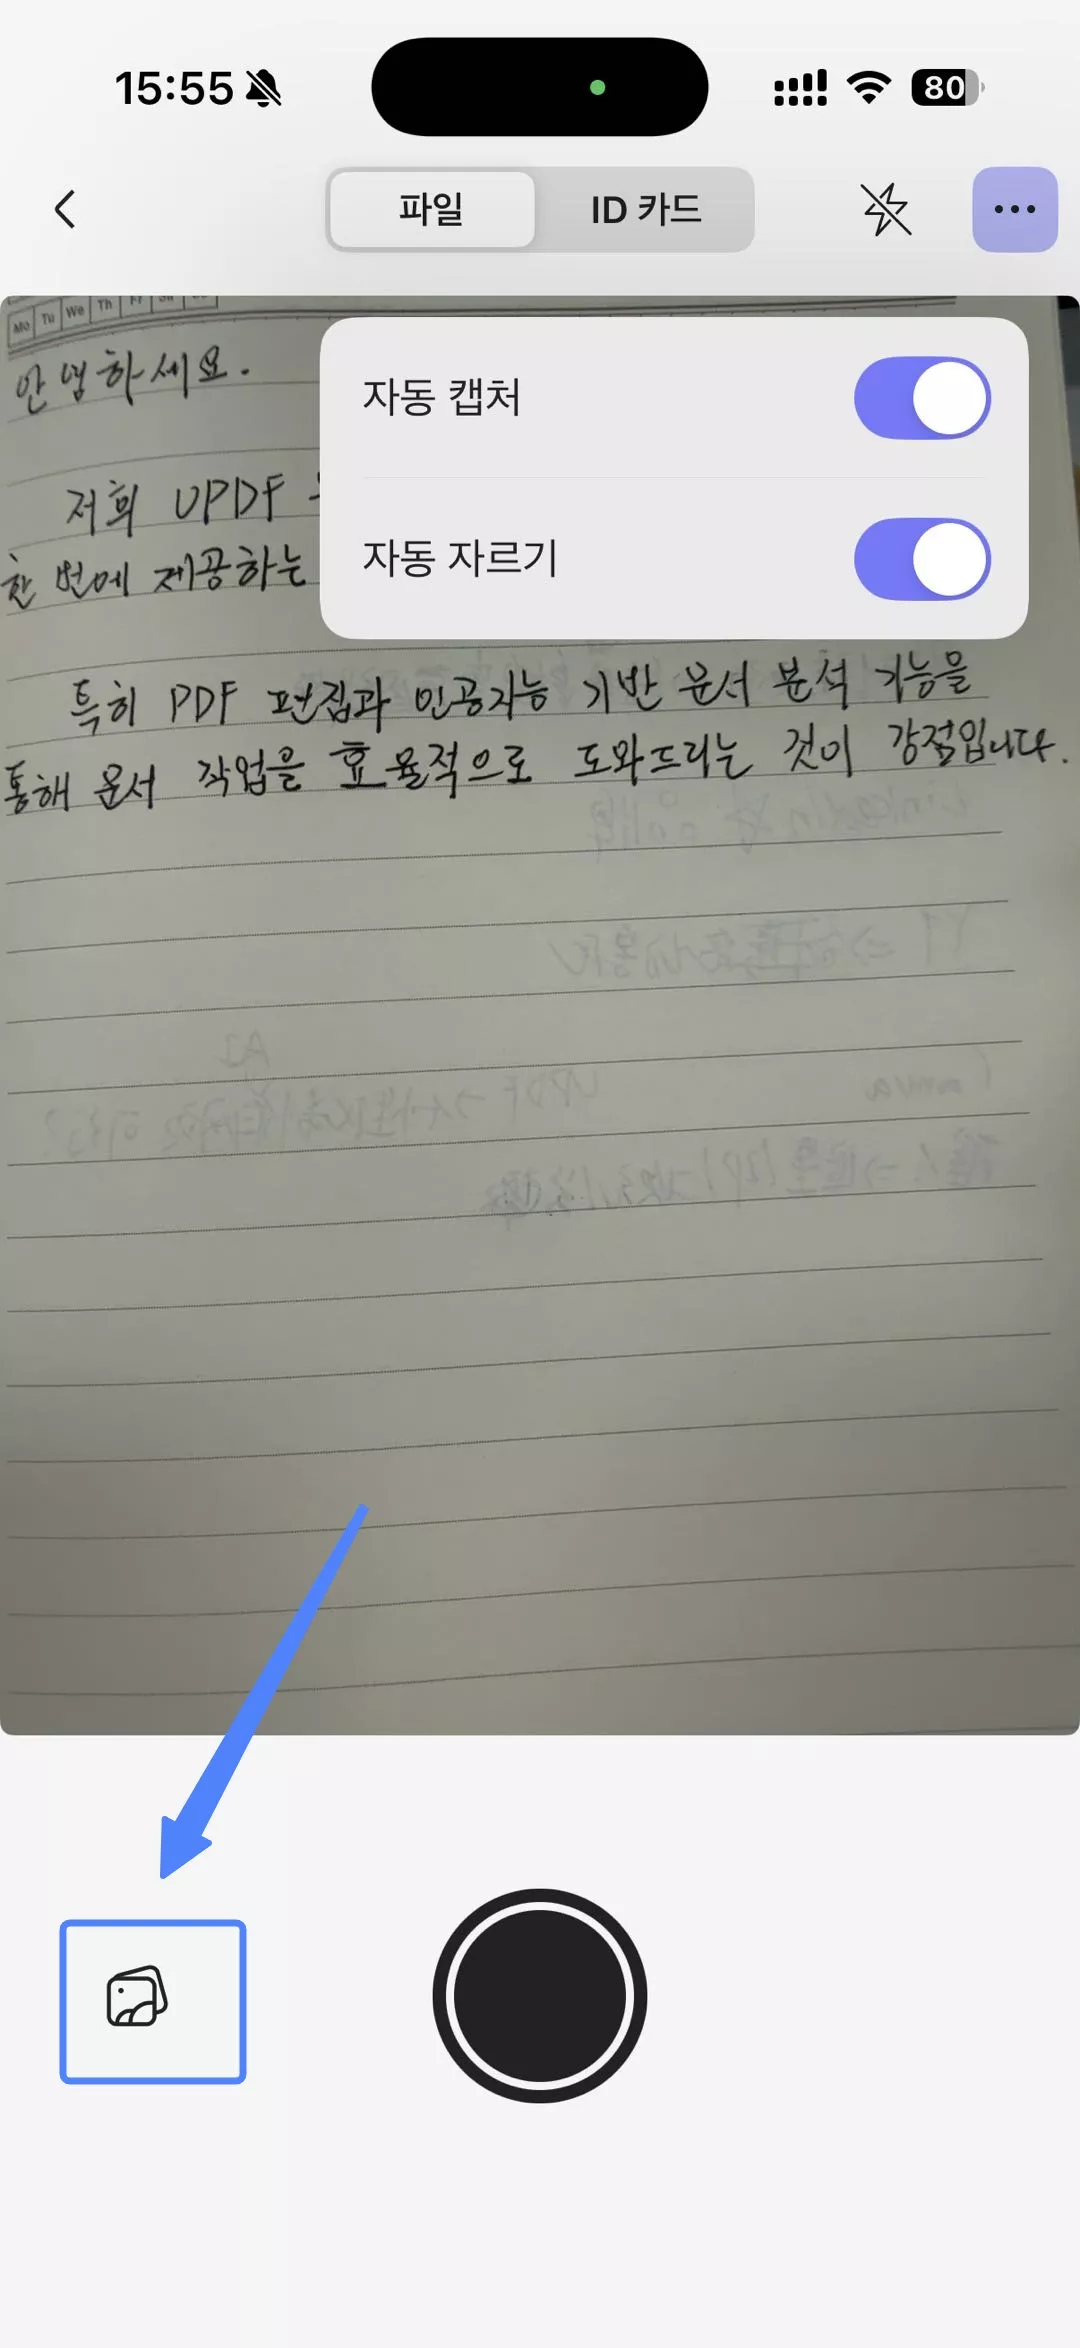 15:55
80
파일 ID 카드
Mo Tu We Th Fr
자동 캡처
자동 자르기
안녕하세요.
저희 UPDF
한 번에 제공하는
특히 PDF 편집과 인공지능 기반 문서 분석 기능을
통해 문서 작업을 효율적으로 도와드리는 것이 강점입니다.